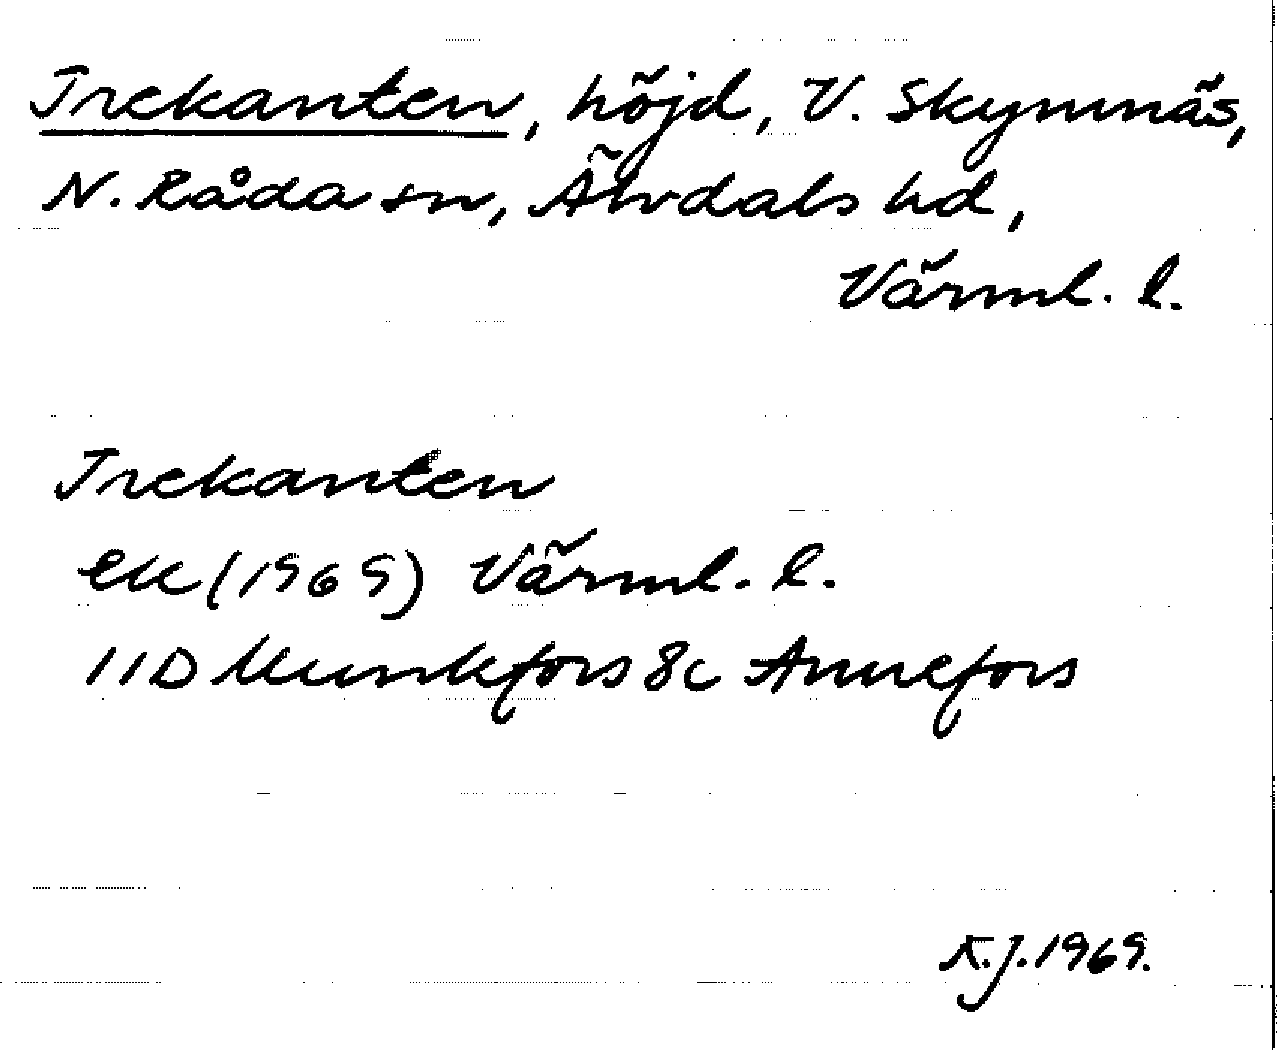 Trekanten, höjd, V. Skymnäs,
N. Råda sn, Älvdals hd,
Värml. l.
Trekanten
ek (1969) Värml. l.
11D Munkfors 8c Annefors
K.J. 1969.